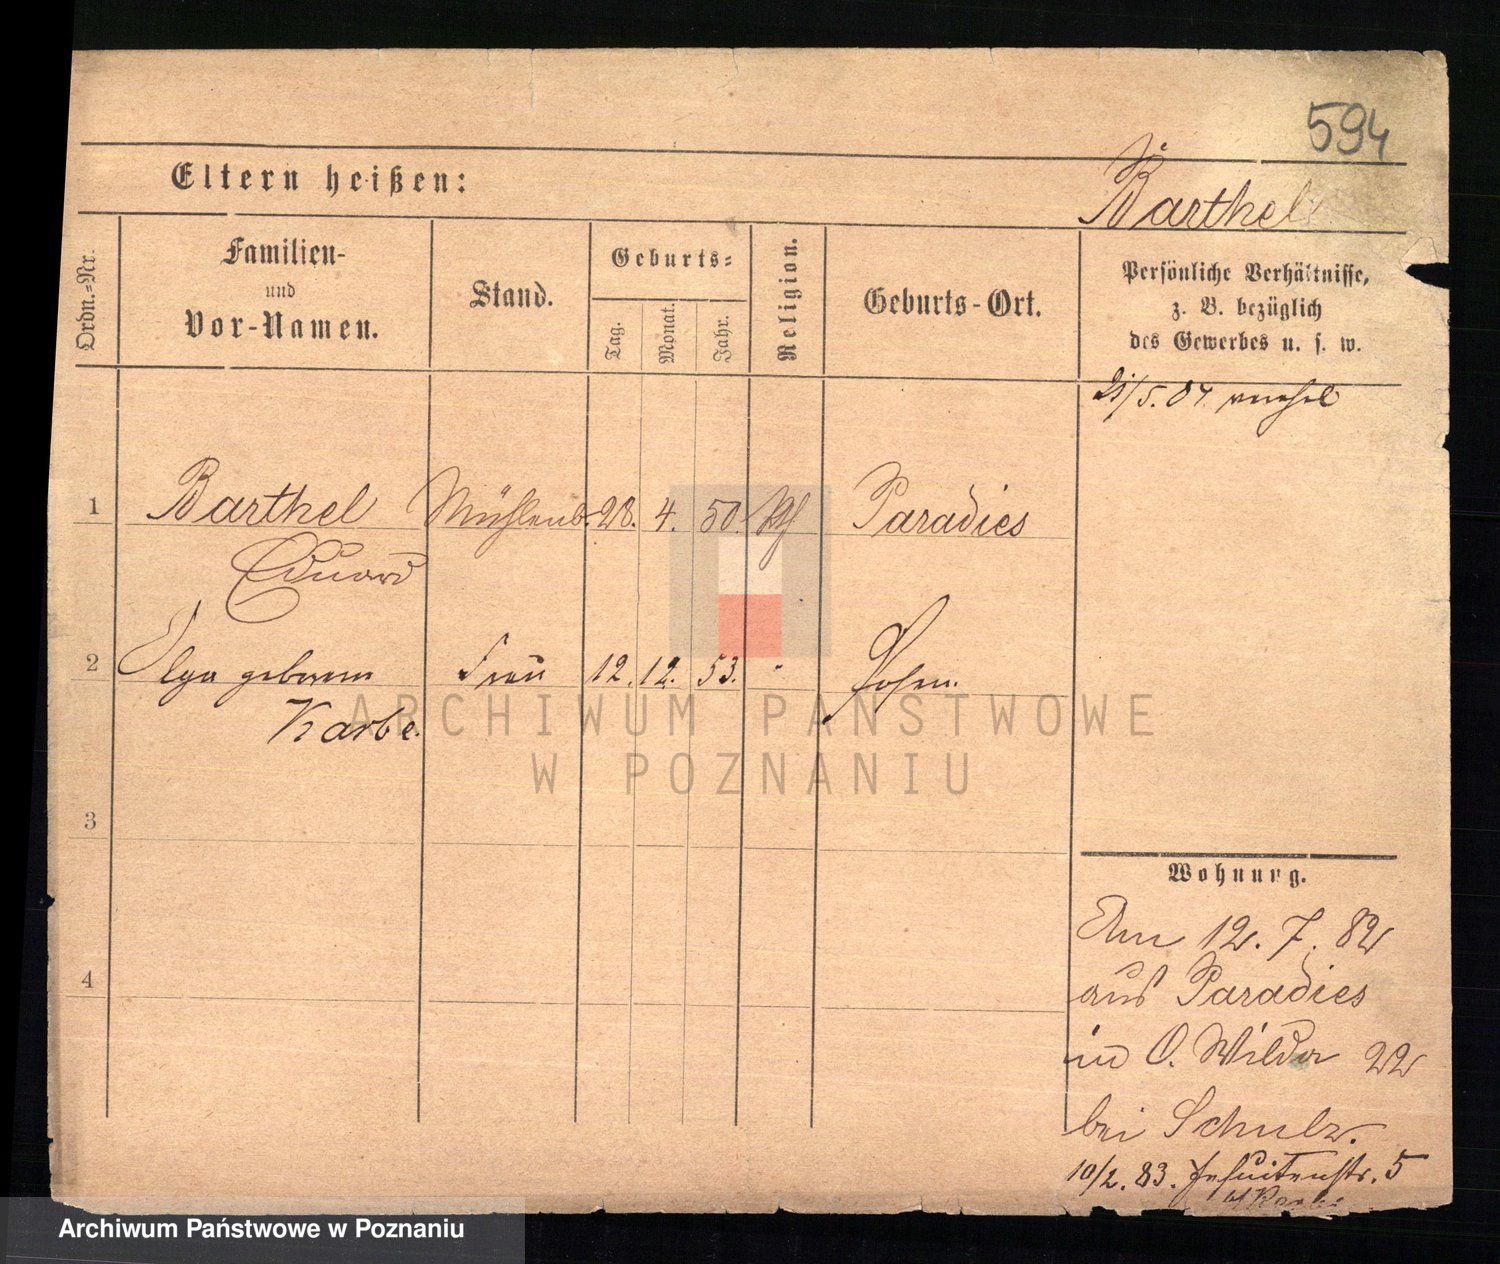 594
Eltern heißen:
Barthel
Ordn.-Nr.
Familien-
und
Vor-Namen.
Stand.
Geburts-
Tag.
Monat.
Jahr.
Religion.
Geburts-Ort.
Persönliche Verhältnisse,
z. B. bezüglich
des Gewerbes u. s. w.
/5. 84.
1 Barthel Mühlenb. 28. 4. 50. Paradies
Eduard
2 Olga geborene Frau 12. 12. 53. - Posen.
Karbe.
ARCHIWUM PAŃSTWOWE
W POZNANIU
3
4
Wohnung.
Am 12. 7. 82
aus Paradies
in O. Wilda 22
bei Schulz.
10/2. 83. Jesuitenstr. 5
Archiwum Państwowe w Poznaniu